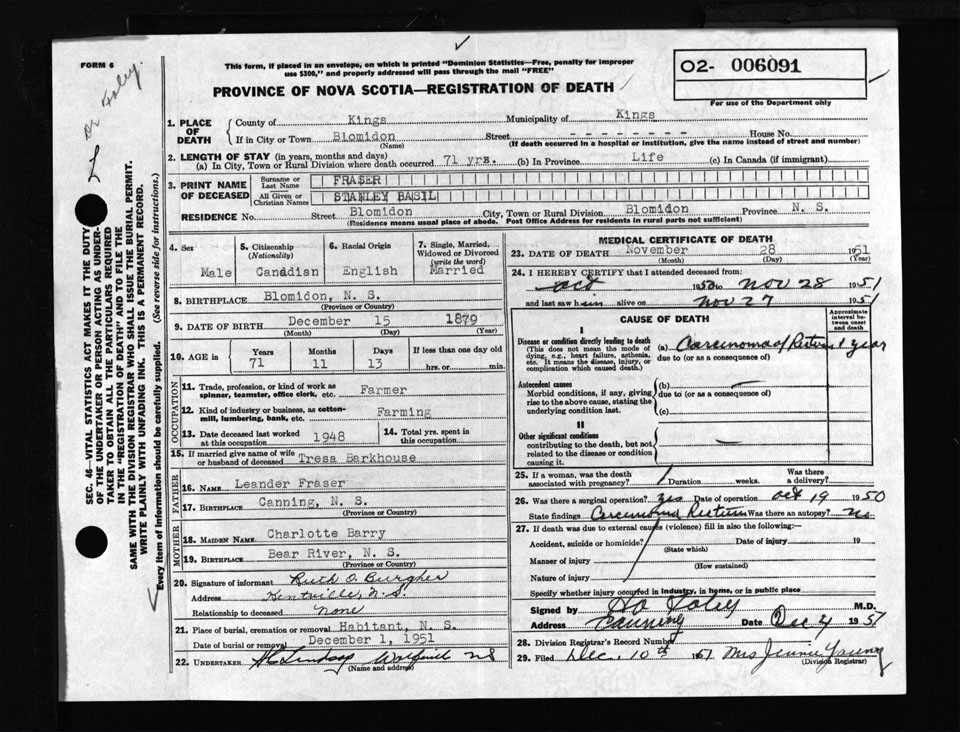 FORM 6
Dr Foley.
This form, if placed in an envelope, on which is printed "Dominion Statistics—Free, penalty for improper
use $300," and properly addressed will pass through the mail "FREE"
PROVINCE OF NOVA SCOTIA—REGISTRATION OF DEATH
O2- 006091
For use of the Department only
SEC. 46—VITAL STATISTICS ACT MAKES IT THE DUTY
OF THE UNDERTAKER OR PERSON ACTING AS UNDER-
TAKER TO OBTAIN ALL THE PARTICULARS REQUIRED
IN THE "REGISTRATION OF DEATH" AND TO FILE THE
SAME WITH THE DIVISION REGISTRAR WHO SHALL ISSUE THE BURIAL PERMIT.
WRITE PLAINLY WITH UNFADING INK. THIS IS A PERMANENT RECORD.
Every item of information should be carefully supplied. (See reverse side for instructions.)
1. PLACE OF DEATH
County of Kings Municipality of Kings
If in City or Town Blomidon Street - - - - - - - House No.
(Name) (If death occurred in a hospital or institution, give the name instead of street and number)
2. LENGTH OF STAY (in years, months and days)
(a) In City, Town or Rural Division where death occurred 71 yrs. (b) In Province Life (c) In Canada (if immigrant)
3. PRINT NAME OF DECEASED
Surname or Last Name FRASER
All Given or Christian Names STANLEY BASIL
RESIDENCE No. Street Blomidon City, Town or Rural Division Blomidon Province N. S.
(Residence means usual place of abode. Post Office Address for residents in rural parts not sufficient)
4. Sex Male
5. Citizenship (Nationality) Canadian
6. Racial Origin English
7. Single, Married, Widowed or Divorced (write the word) Married
8. BIRTHPLACE Blomidon, N. S.
(Province or Country)
9. DATE OF BIRTH December 15 1879
(Month) (Day) (Year)
10. AGE in Years Months Days If less than one day old
71 11 13 hrs. or min.
OCCUPATION
11. Trade, profession, or kind of work as
spinner, teamster, office clerk, etc. Farmer
12. Kind of industry or business, as cotton-
mill, lumbering, bank, etc. Farming
13. Date deceased last worked
at this occupation 1948
14. Total yrs. spent in
this occupation
15. If married give name of wife
or husband of deceased Tresa Barkhouse
FATHER
16. NAME Leander Fraser
17. BIRTHPLACE Canning, N. S.
(Province or Country)
MOTHER
18. MAIDEN NAME Charlotte Barry
19. BIRTHPLACE Bear River, N. S.
(Province or Country)
20. Signature of informant Ruth O. Burgher
Address Kentville, N.S.
Relationship to deceased None
21. Place of burial, cremation or removal Habitant, N. S.
Date of burial or removal December 1, 1951
22. UNDERTAKER Lindsay Wolfville NS
(Name and address)
MEDICAL CERTIFICATE OF DEATH
23. DATE OF DEATH November 28 1951
(Month) (Day) (Year)
24. I HEREBY CERTIFY that I attended deceased from:
Oct 1950 to Nov 28 1951
and last saw him alive on Nov 27 1951
CAUSE OF DEATH
Approximate interval between onset and death
I
Disease or condition directly leading to death
(This does not mean the mode of
dying, e.g., heart failure, asthenia,
etc. It means the disease, injury, or
complication which caused death.)
(a) Carcinoma of Rectum 1 year
due to (or as a consequence of)
Antecedent causes
Morbid conditions, if any, giving
rise to the above cause, stating the
underlying condition last.
(b)
due to (or as a consequence of)
(c)
II
Other significant conditions
contributing to the death, but not
related to the disease or condition
causing it.
25. If a woman, was the death
associated with pregnancy? Duration weeks. Was there
a delivery?
26. Was there a surgical operation? yes Date of operation Oct 19 1950
State findings Carcinoma Rectum Was there an autopsy? No
27. If death was due to external causes (violence) fill in also the following:—
Accident, suicide or homicide? Date of injury 19
(State which)
Manner of injury
(How sustained)
Nature of injury
Specify whether injury occurred in industry, in home, or in public place
Signed by Foley M.D.
Address Canning Date Dec 4 1951
28. Division Registrar's Record Number
29. Filed Dec. 10th 1951 Mrs Jennie Young
(Division Registrar)